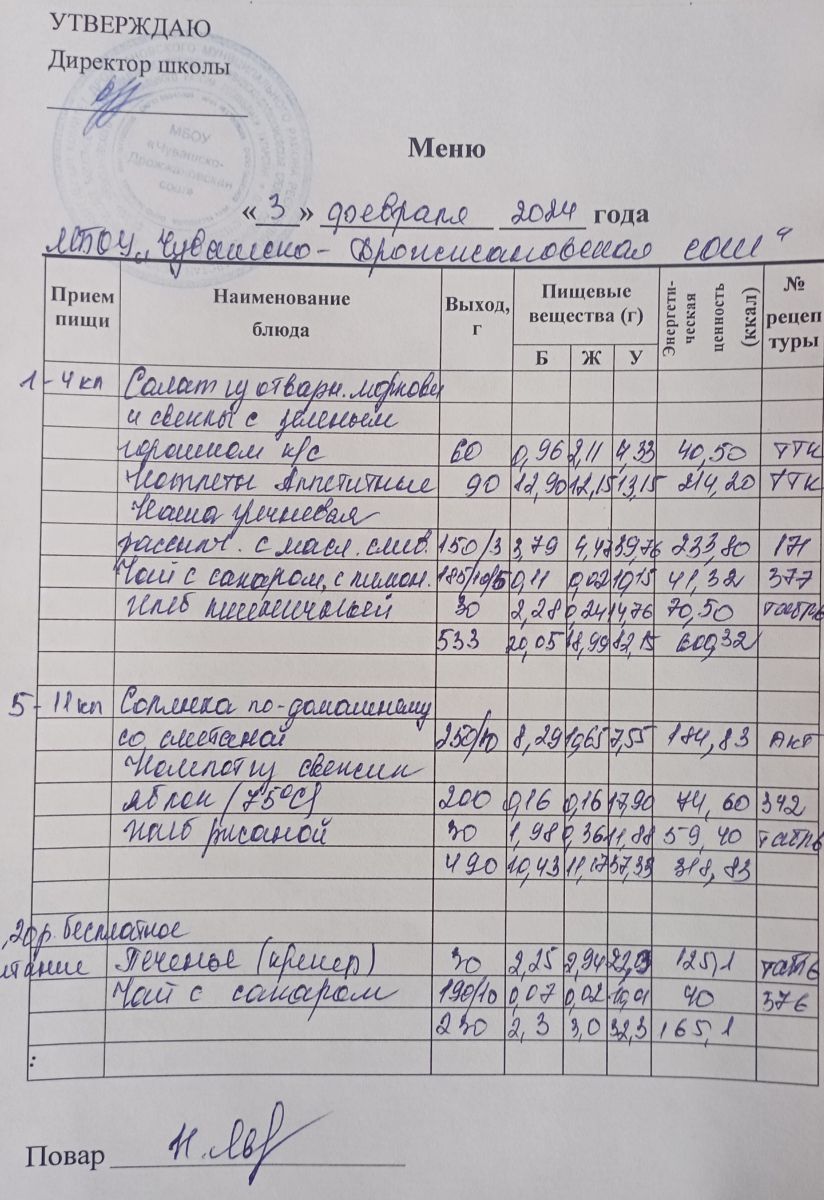 УТВЕРЖДАЮ
Директор школы
МБОУ
«Чувашско-
Дрожжановская
сош»
Меню
«3» февраля 2024 года
МБОУ „Чувашско-Дрожжановская сош"
Прием пищи Наименование блюда Выход, г Пищевые вещества (г) Энергети-ческая ценность (ккал) № рецеп туры
Б Ж У
1-4 кл Салат из отварн. моркови
и свеклы с зеленым
горошком к/с 60 0,96 2,11 4,33 40,50 ТТК
Котлеты Аппетитные 90 12,90 12,15 13,15 214,20 ТТК
Каша гречневая
рассыпч. с масл. слив. 150/3 3,79 4,47 39,76 233,80 171
Чай с сахаром, с лимон. 185/10/5 0,11 0,02 10,15 41,32 377
Хлеб пшеничный 30 2,28 0,24 14,76 70,50
533 20,05 18,99 82,15 600,32
5-11 кл Солянка по-домашнему
со сметаной 250/10 8,29 10,65 7,55 184,83 Акт
Компот из свежих
яблок (75°С) 200 0,16 0,16 17,90 74,60 342
Хлеб ржаной 30 1,98 0,36 11,88 59,40
490 10,43 11,17 37,33 318,83
,20р. бесплатное
итание Печенье (крекер) 30 2,25 2,94 22,3 125,1
Чай с сахаром 190/10 0,07 0,02 10,01 40 376
230 2,3 3,0 32,3 165,1
:
Повар